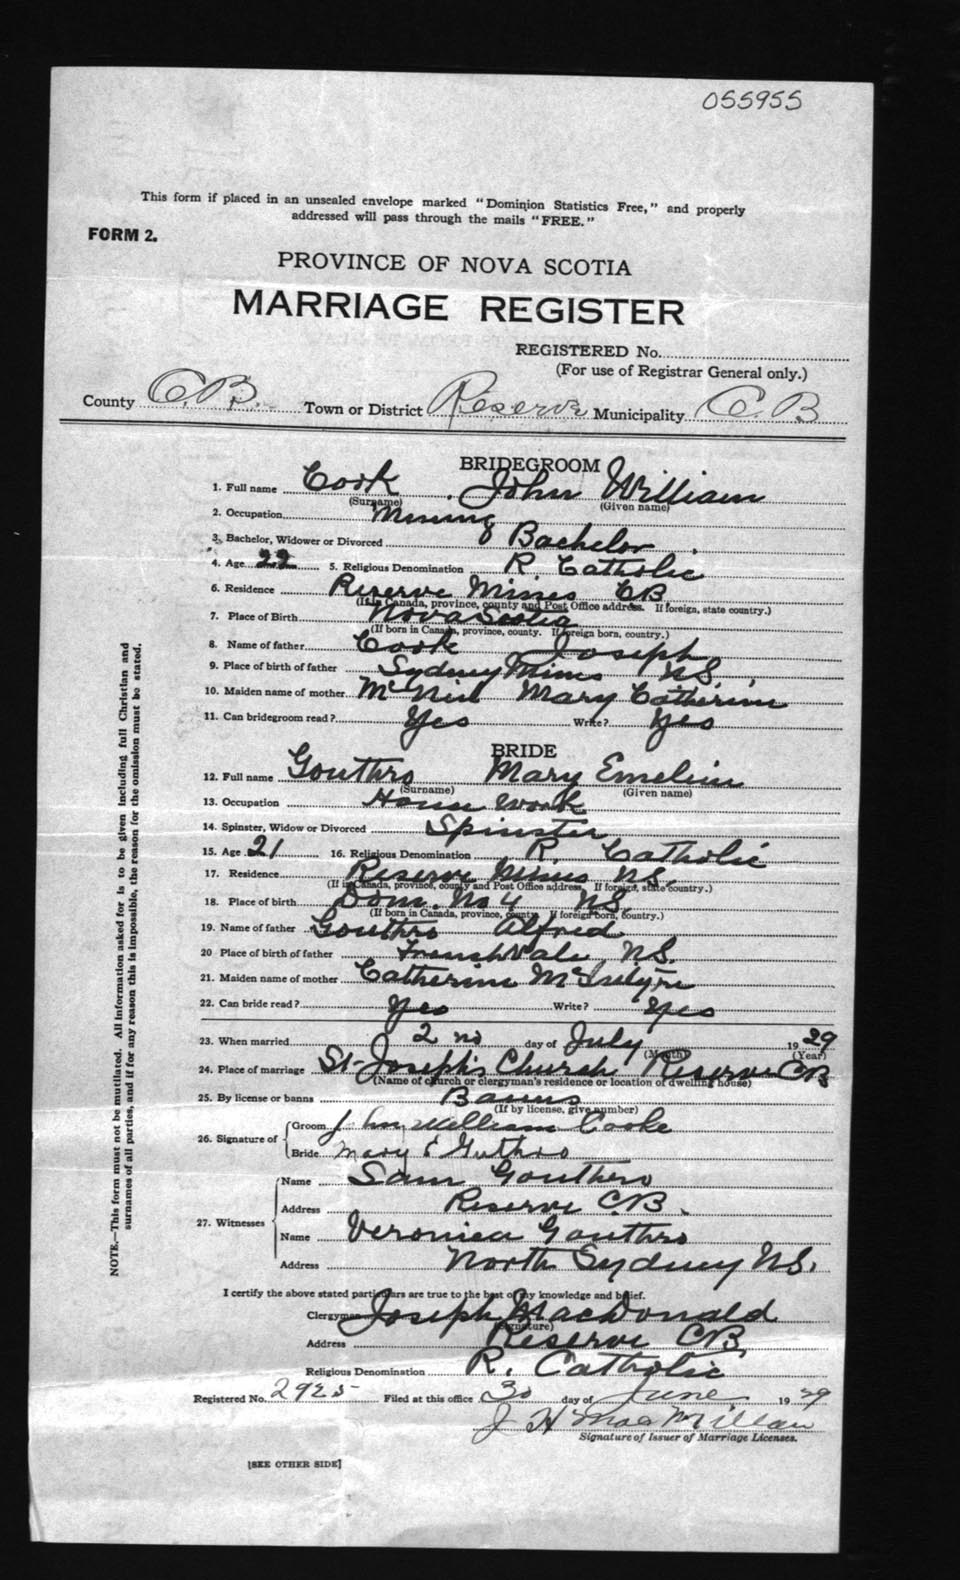 055955
This form if placed in an unsealed envelope marked "Dominion Statistics Free," and properly
addressed will pass through the mails "FREE."
FORM 2.
PROVINCE OF NOVA SCOTIA
MARRIAGE REGISTER
REGISTERED No.
(For use of Registrar General only.)
County C.B. Town or District Reserve Municipality C.B
BRIDEGROOM
1. Full name Cook John William
(Surname) (Given name)
2. Occupation Mining
3. Bachelor, Widower or Divorced Bachelor
4. Age 22 5. Religious Denomination R. Catholic
6. Residence Reserve Mines CB
(If in Canada, province, county and Post Office address. If foreign, state country.)
7. Place of Birth Nova Scotia
(If born in Canada, province, county. If foreign born, country.)
8. Name of father Cook Joseph
9. Place of birth of father Sydney Mines NS.
10. Maiden name of mother McNeil Mary Catherine
11. Can bridegroom read? Yes Write? Yes
BRIDE
12. Full name Gouthro Mary Emeline
(Surname) (Given name)
13. Occupation House work
14. Spinster, Widow or Divorced Spinster
15. Age 21 16. Religious Denomination R. Catholic
17. Residence Reserve Mines NS.
(If in Canada, province, county and Post Office address. If foreign, state country.)
18. Place of birth Dom. No 4 NS.
(If born in Canada, province, county. If foreign born, country.)
19. Name of father Gouthro Alfred
20 Place of birth of father FrenchVale, NS.
21. Maiden name of mother Catherine McIntyre
22. Can bride read? Yes Write? Yes
23. When married 2nd day of July 1929
(Month) (Year)
24. Place of marriage St. Joseph's Church Reserve CB
(Name of church or clergyman's residence or location of dwelling house)
25. By license or banns Banns
(If by license, give number)
26. Signature of
Groom John William Cooke
Bride Mary E Guthro
27. Witnesses
Name Sam Gouthro
Address Reserve C.B.
Name Veronica Gouthro
Address North Sydney NS.
I certify the above stated particulars are true to the best of my knowledge and belief.
Clergyman Joseph MacDonald
(Signature)
Address Reserve CB,
Religious Denomination R. Catholic
Registered No. 2925 Filed at this office 30 day of June 1929
J H MacMillan
Signature of Issuer of Marriage Licenses.
[SEE OTHER SIDE]
NOTE.—This form must not be mutilated. All information asked for is to be given including full Christian and
surnames of all parties, and if for any reason this is impossible, the reason for the omission must be stated.